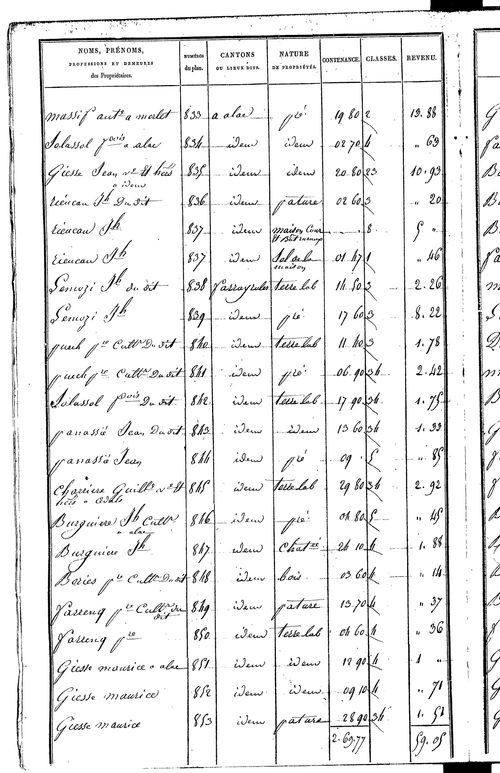 NOMS, PRÉNOMS,
PROFESSIONS ET DEMEURES
des Propriétaires.
NUMÉROS
du plan.
CANTONS
OU LIEUX DITS.
NATURE
DE PROPRIÉTÉS.
CONTENANCE.
CLASSES.
REVENU.
massif ant.e a merlet 833 a alac pré 19 80 2 19. 88
Solassol a alac 834 idem idem 02 70 4 " 69
Giesse Jean 835 idem idem 20 80 23 10. 93
a idem
Jh Du dit 836 idem pature 02 60 3 " 20
Jh 837 idem maison Cour 8 5 "
et
Jh 837 idem Sol de la 01 47 1 " 46
maison
Lemozi Jh du dit 838 farrayroles terre lab 14 50 3 2. 26
Lemozi Jh 839 idem pré 17 60 3 8. 22
puech pre Cultr Du dit 840 idem terre lab 11 40 3 1. 78
puech pre Cultr Du dit 841 idem pré 06 90 34 2. 42
Solassol Du dit 842 idem terre lab 17 90 34 1. 75
panassié Jean Du dit 843 idem idem 13 60 34 1. 33
panassié Jean 844 idem pré 09 5 " 85
Charrière Guill 845 idem terre lab 29 80 34 2. 92
Burguiere Jh Cultr 846 idem pré 04 80 5 " 45
a alac
Burguiere Jh 847 idem 24 10 4 1. 88
Bories pre Cultr Du dit 848 idem bois 03 60 4 " 14
farrenq pre Cultr du 849 idem pature 13 70 4 " 37
dit
farrenq pre 850 idem terre lab 04 60 4 " 36
Giesse maurice a alac 851 idem idem 12 90 4 1 "
Giesse maurice 852 idem idem 09 10 4 " 71
Giesse maurice 853 idem pature 28 90 34 1. 51
2. 69. 77 59. 05